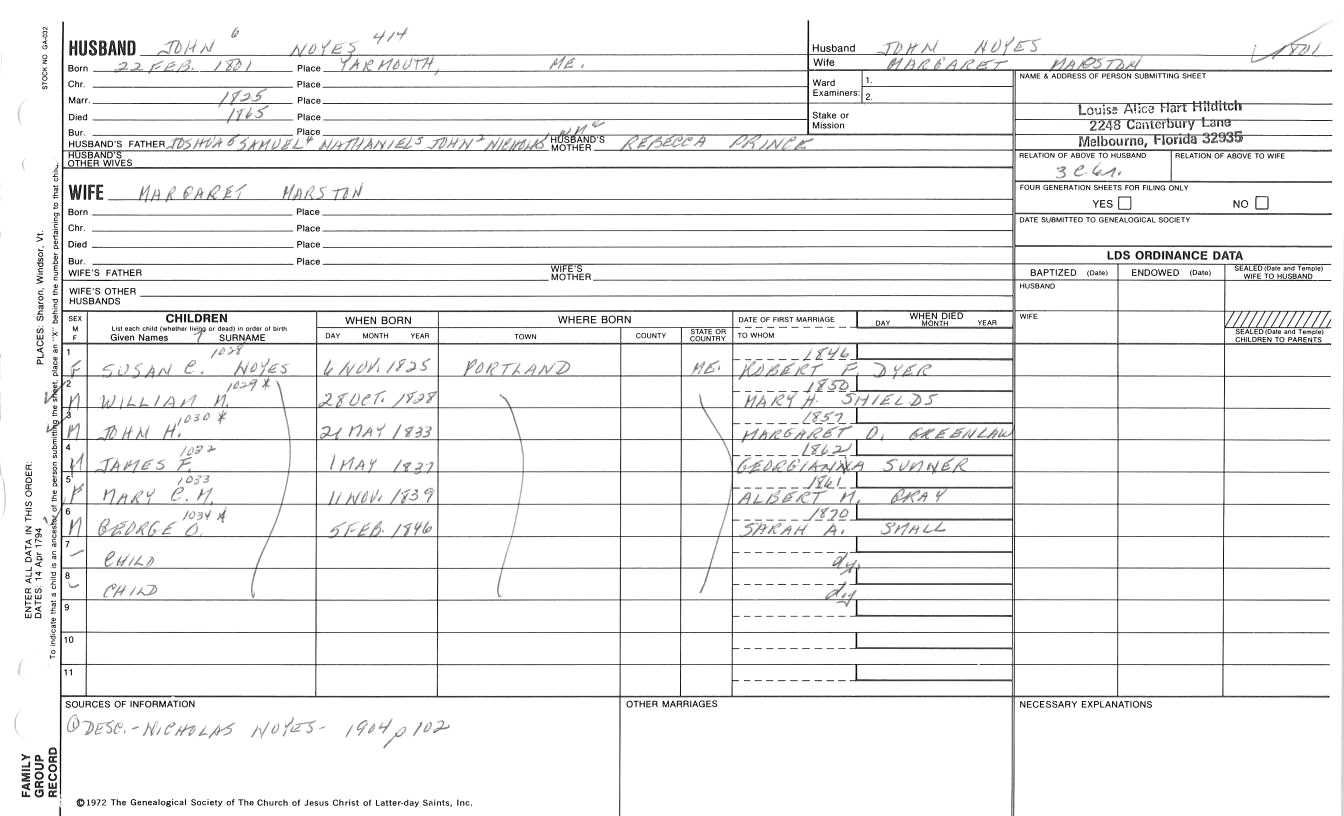 STOCK NO. GA-032
HUSBAND JOHN 6 NOYES 414
Born 22 FEB. 1801 Place YARMOUTH, ME.
Chr. Place
Marr. 1825 Place
Died 1865 Place
Bur. Place
HUSBAND'S FATHER JOSHUA 5 SAMUEL 4 NATHANIEL 3 JOHN 2 NICHOLAS 1 HUSBAND'S MOTHER REBECCA PRINCE
HUSBAND'S OTHER WIVES
Husband JOHN NOYES 1801
Wife MARGARET MARSTON
Ward Examiners: 1.
2.
Stake or Mission
NAME & ADDRESS OF PERSON SUBMITTING SHEET
Louise Alice Hart Hilditch
2248 Canterbury Lane
Melbourne, Florida 32935
RELATION OF ABOVE TO HUSBAND RELATION OF ABOVE TO WIFE
FOUR GENERATION SHEETS FOR FILING ONLY
YES NO
DATE SUBMITTED TO GENEALOGICAL SOCIETY
WIFE MARGARET MARSTON
Born Place
Chr. Place
Died Place
Bur. Place
WIFE'S FATHER WIFE'S MOTHER
WIFE'S OTHER HUSBANDS
LDS ORDINANCE DATA
BAPTIZED (Date) ENDOWED (Date) SEALED (Date and Temple) WIFE TO HUSBAND
HUSBAND
WIFE
SEALED (Date and Temple) CHILDREN TO PARENTS
SEX M F
CHILDREN
List each child (whether living or dead) in order of birth
Given Names SURNAME
WHEN BORN DAY MONTH YEAR
WHERE BORN TOWN COUNTY STATE OR COUNTRY
DATE OF FIRST MARRIAGE
TO WHOM
WHEN DIED DAY MONTH YEAR
1 1028 1846
F SUSAN C. NOYES 6 NOV. 1825 PORTLAND ME. ROBERT F. DYER
2 1029 * 1850
M WILLIAM M. 28 OCT. 1828 MARY H. SHIELDS
3 1030 * 1857
M JOHN H. 21 MAY 1833 MARGARET D. GREENLAW
4 1032 1862
M JAMES F. 1 MAY 1837 GEORGIANNA SUMNER
5 1033 1861
F MARY C. M. 11 NOV. 1839 ALBERT M. GRAY
6 1034 * 1870
M GEORGE O. 5 FEB. 1846 SARAH A. SMALL
7 CHILD dy.
8 CHILD dy
9
10
11
SOURCES OF INFORMATION
① DESC.-NICHOLAS NOYES- 1904 p 102
OTHER MARRIAGES
NECESSARY EXPLANATIONS
©1972 The Genealogical Society of The Church of Jesus Christ of Latter-day Saints, Inc.
FAMILY GROUP RECORD
ENTER ALL DATA IN THIS ORDER:
DATES: 14 Apr 1794
PLACES: Sharon, Windsor, Vt.
To indicate that a child is an ancestor of the person submitting the sheet, place an "X" behind the number pertaining to that child.